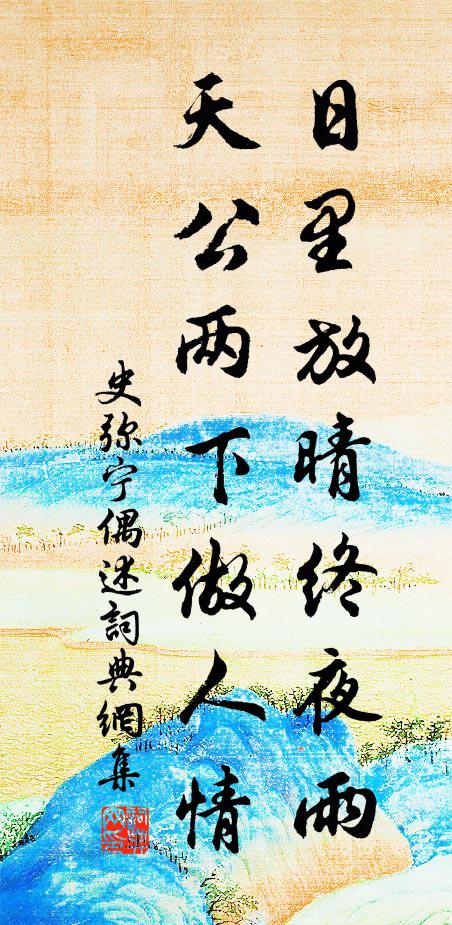 日里放晴终夜雨
天公两下做人情
史弥宁偶述詞典網集